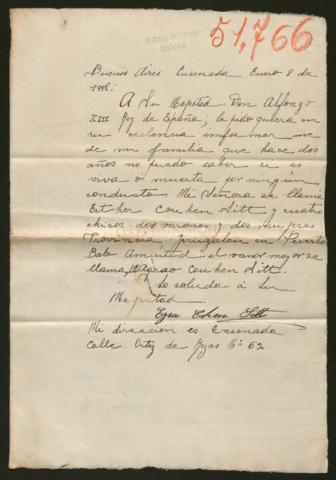 POBLACION
CIVIL
51,766
Buenos Aires Ensenada Enero 8 de
1918:
A Su Majestad Don Alfonzo
XIII Rey de España; le pido quiera en
su exelencia informar me
de mi familia que hace dos
años no puedo saber si es
viva o muerta por ningún
conducto. Mi Señora se llama
Esther Couhen Sitt y cuatro
chicos dos varones y dos mujeres
Provincia Jeruzalen en Puerto
el varon mayor se
llama Couhen Sitt.
Lo saluda á Su
Majestad
Ezra Cohen Sitt
Mi direccion es Ensenada
Calle Ortiz de Rosas Nº 62